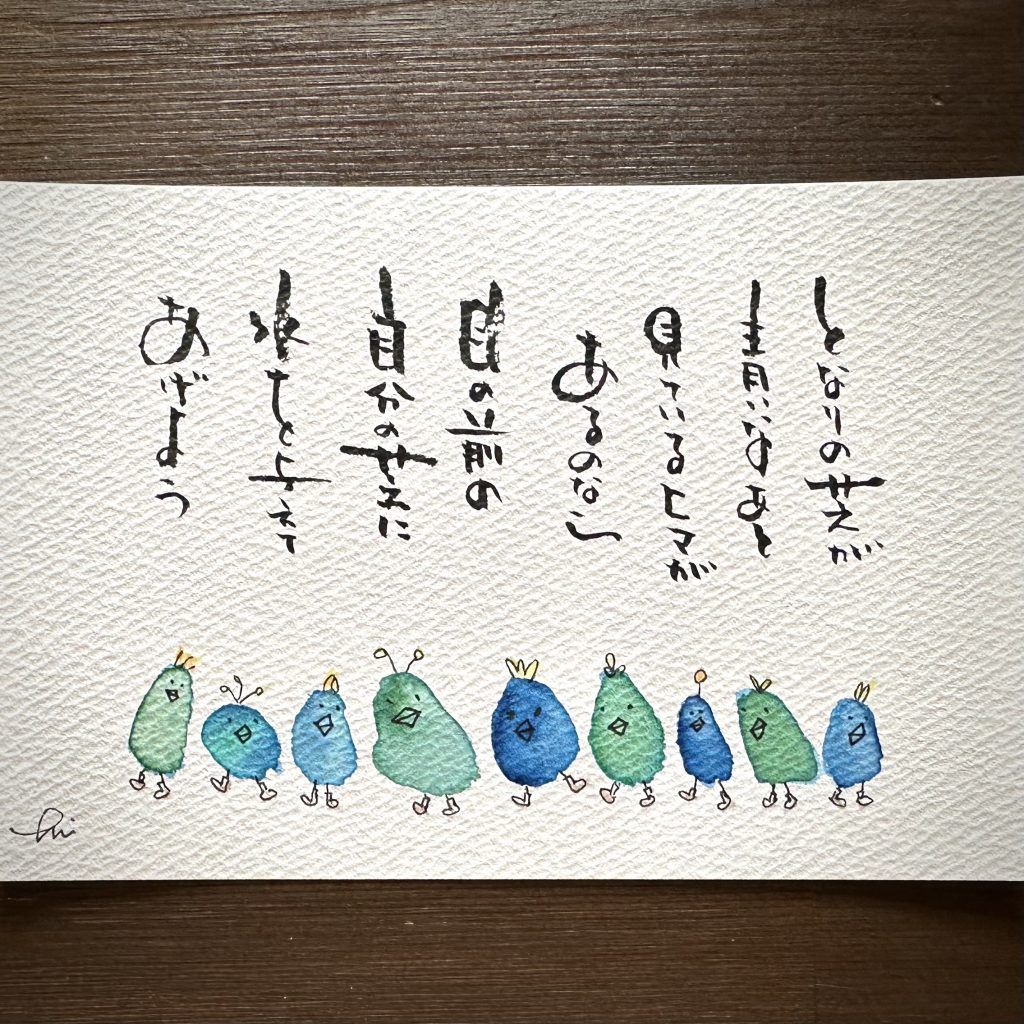 となりの芝が
青いなあと
見ているヒマが
あるのなら
目の前の
自分の芝に
水を与えて
あげよう